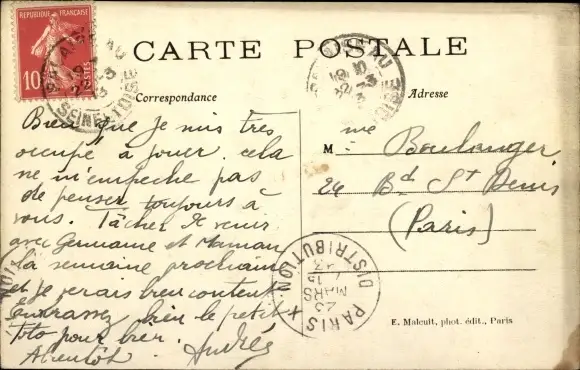 REPUBLIQUE FRANÇAISE
10
POSTES
CARTE POSTALE
Correspondance
Adresse
SEINE & OISE
Bien que je suis très
occupé à jouer. cela
ne m'empeche pas
de penser toujours à
vous. Tâcher de venir
avec Germaine et Maman
la semaine prochaine
et je serais bien content
Embrassez bien le petit
toto pour bier.
Abientôt Andrée
M me Boulanger
24 Bd St Denis
(Paris)
PARIS DISTRIBUTION
MARS
E. Malcuit, phot. édit., Paris